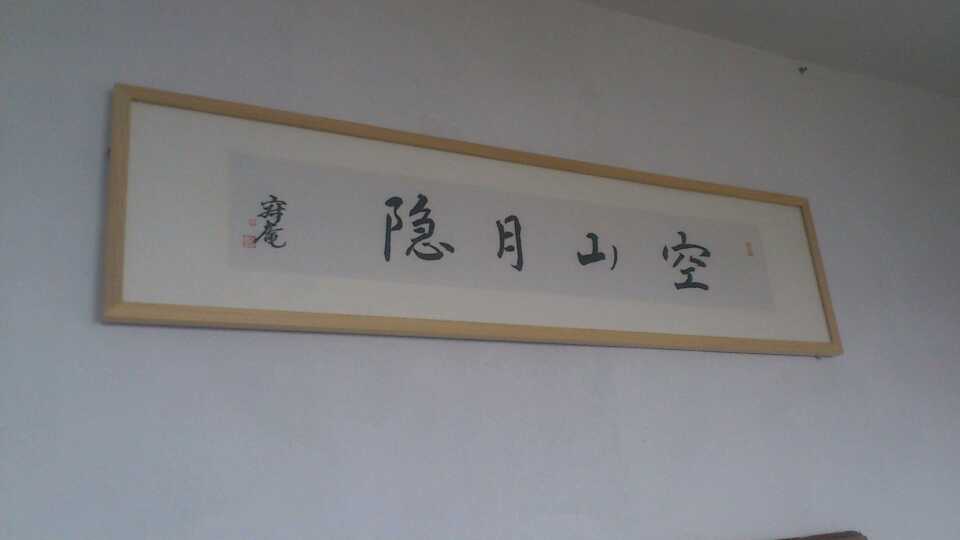 空山月隐